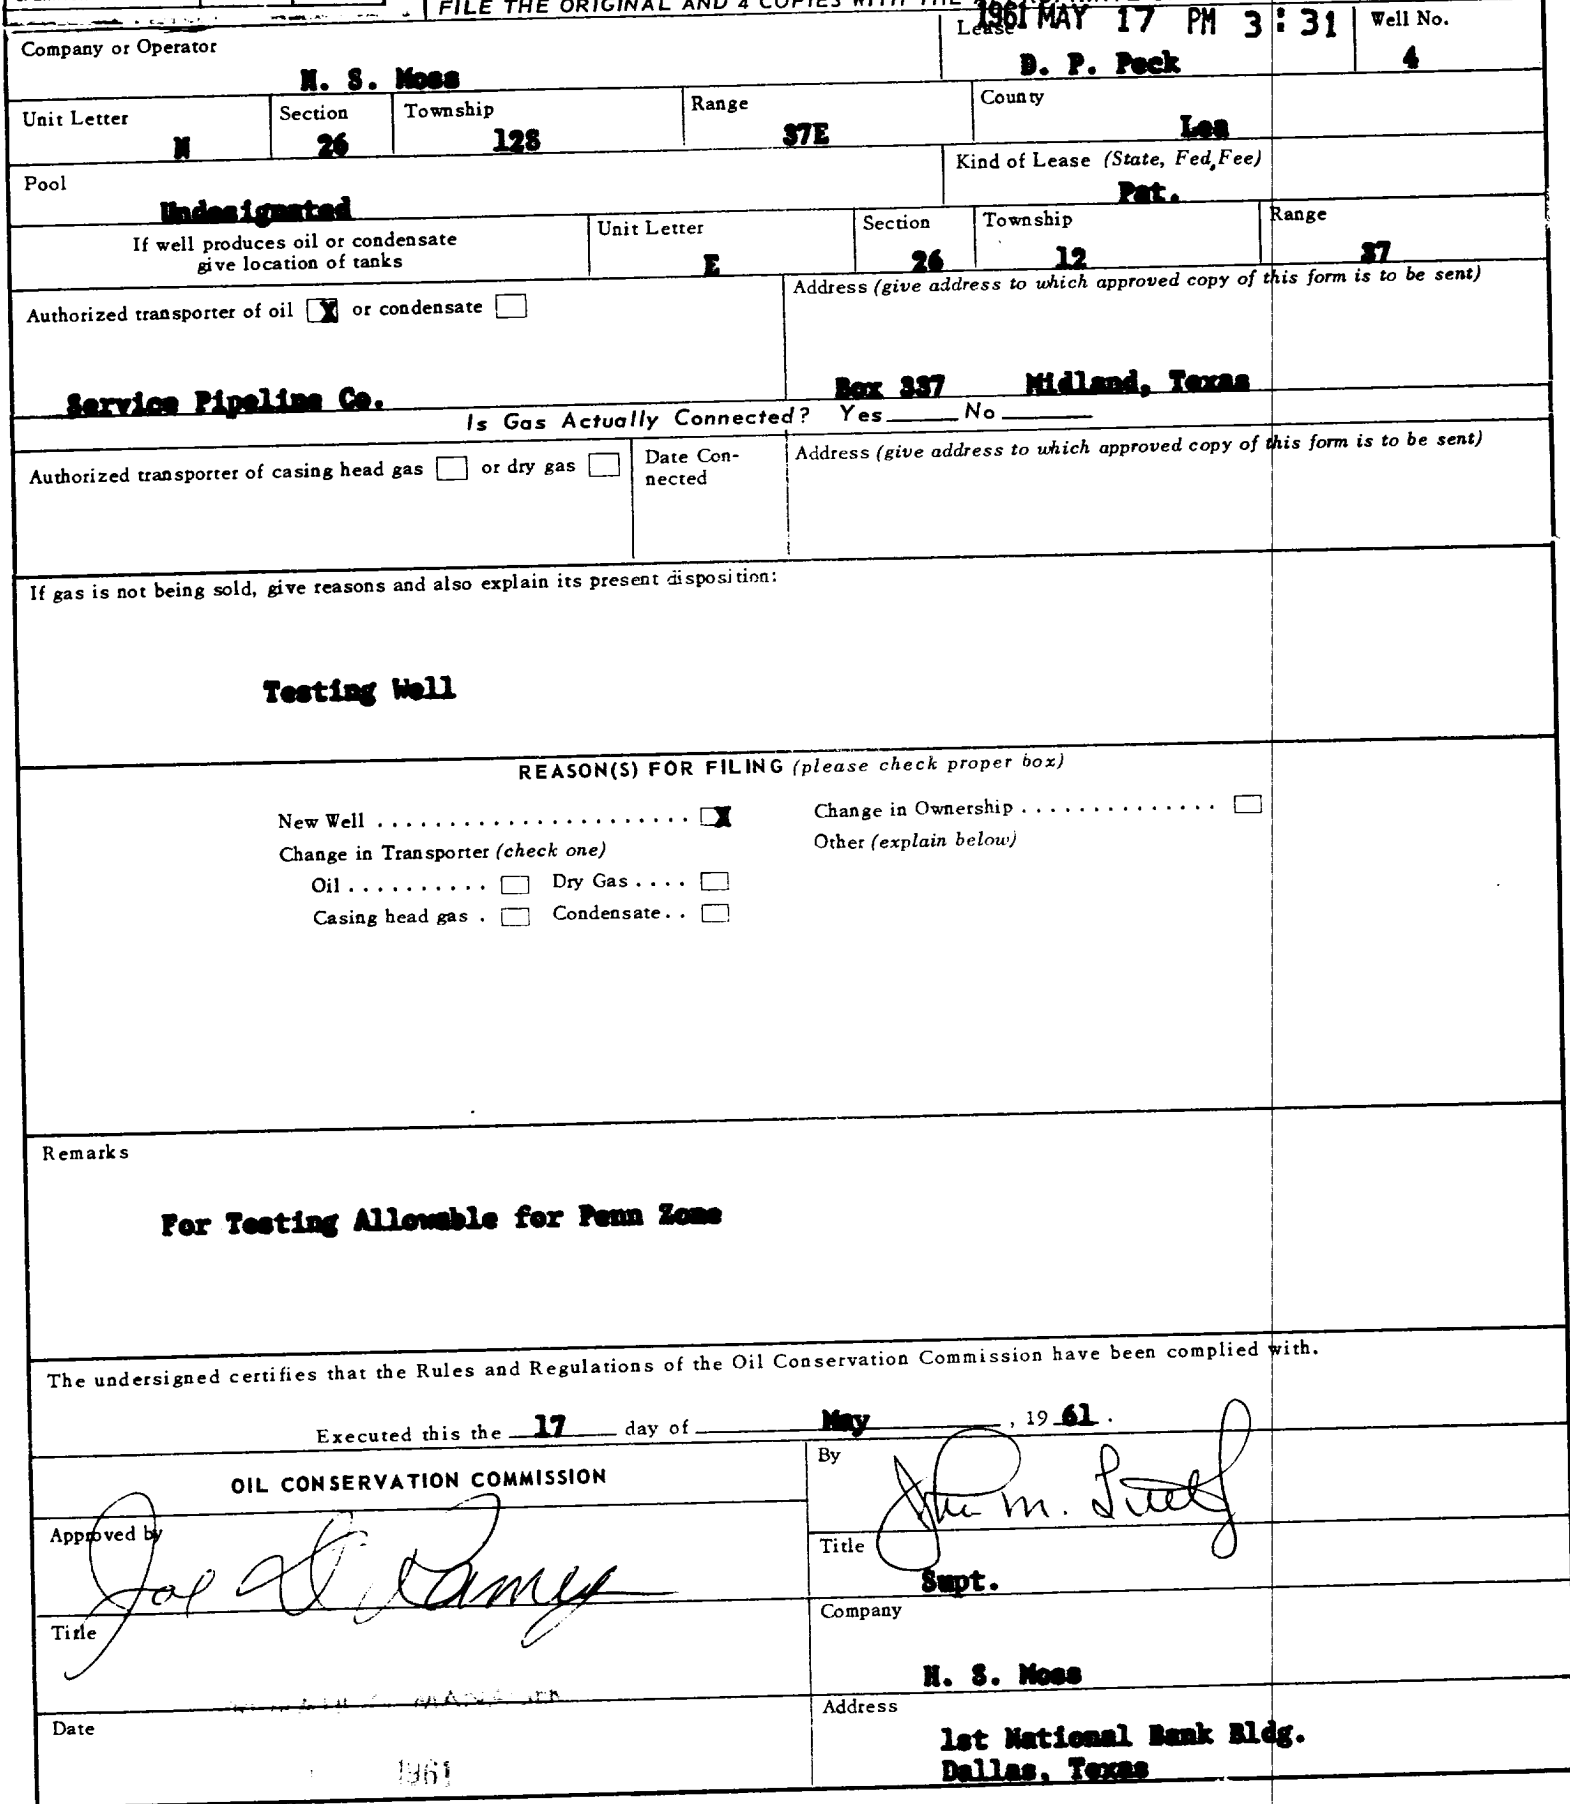 FILE THE ORIGINAL AND 4 COPIES WITH THE
1961 MAY 17 PM 3:31
Company or Operator
H. S. Moss
Lease
D. P. Peck
Well No.
4
Unit Letter
Section
26
Township
12S
Range
37E
County
Lea
Pool
Undesignated
Kind of Lease (State, Fed, Fee)
Pat.
If well produces oil or condensate
give location of tanks
Unit Letter
E
Section
26
Township
12
Range
37
Authorized transporter of oil [X] or condensate [ ]
Address (give address to which approved copy of this form is to be sent)
Service Pipeline Co.
Box 337 Midland, Texas
Is Gas Actually Connected? Yes______ No________
Authorized transporter of casing head gas [ ] or dry gas [ ]
Date Con-
nected
Address (give address to which approved copy of this form is to be sent)
If gas is not being sold, give reasons and also explain its present disposition:
Testing Well
REASON(S) FOR FILING (please check proper box)
New Well . . . . . . . . . . . . . . . . . . . . . . [X]
Change in Ownership . . . . . . . . . . . . . . [ ]
Change in Transporter (check one)
Other (explain below)
Oil . . . . . . . . . . [ ] Dry Gas . . . . [ ]
Casing head gas . [ ] Condensate . . [ ]
Remarks
For Testing Allowable for Penn Zone
The undersigned certifies that the Rules and Regulations of the Oil Conservation Commission have been complied with.
Executed this the 17 day of May , 19 61 .
OIL CONSERVATION COMMISSION
By
Approved by
Joe D. Ramey
Title
Supt.
Title
Company
H. S. Moss
Date
1961
Address
1st National Bank Bldg.
Dallas, Texas